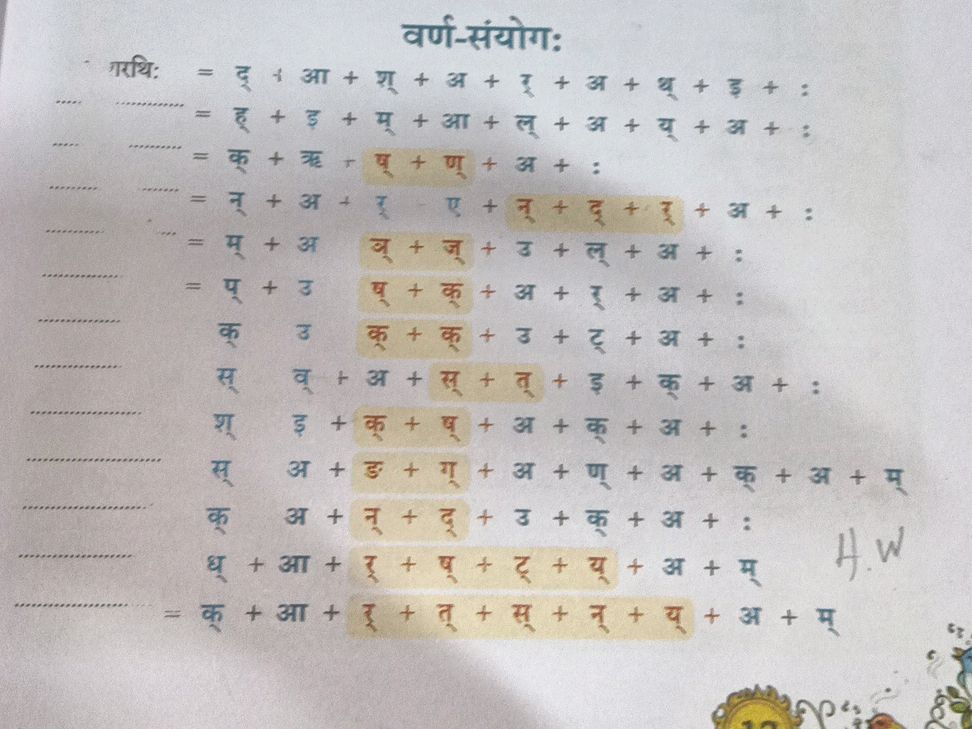 वर्ण-संयोगः
= द् + आ + श् + अ + र् + अ + थ् + इ + :
= ह् + इ + म् + आ + ल् + अ + य् + अ + :
= क् + ऋ + ष् + ण् + अ + :
= न् + अ + र् ए + न् + द् + र् + अ + :
= म् + अ ञ् + ज् + उ + ल् + अ + :
= प् + उ ष् + क् + अ + र् + अ + :
क् उ क् + क् + उ + ट् + अ + :
स् व् + अ + स् + त् + इ + क् + अ + :
श् इ + क् + ष् + अ + क् + अ + :
स् अ + ङ + ग् + अ + ण् + अ + क् + अ + म्
क् अ + न् + द् + उ + क् + अ + :
ध् + आ + र् + ष् + ट् + य् + अ + म्
H.W
= क् + आ + र् + त् + स् + न् + य् + अ + म्